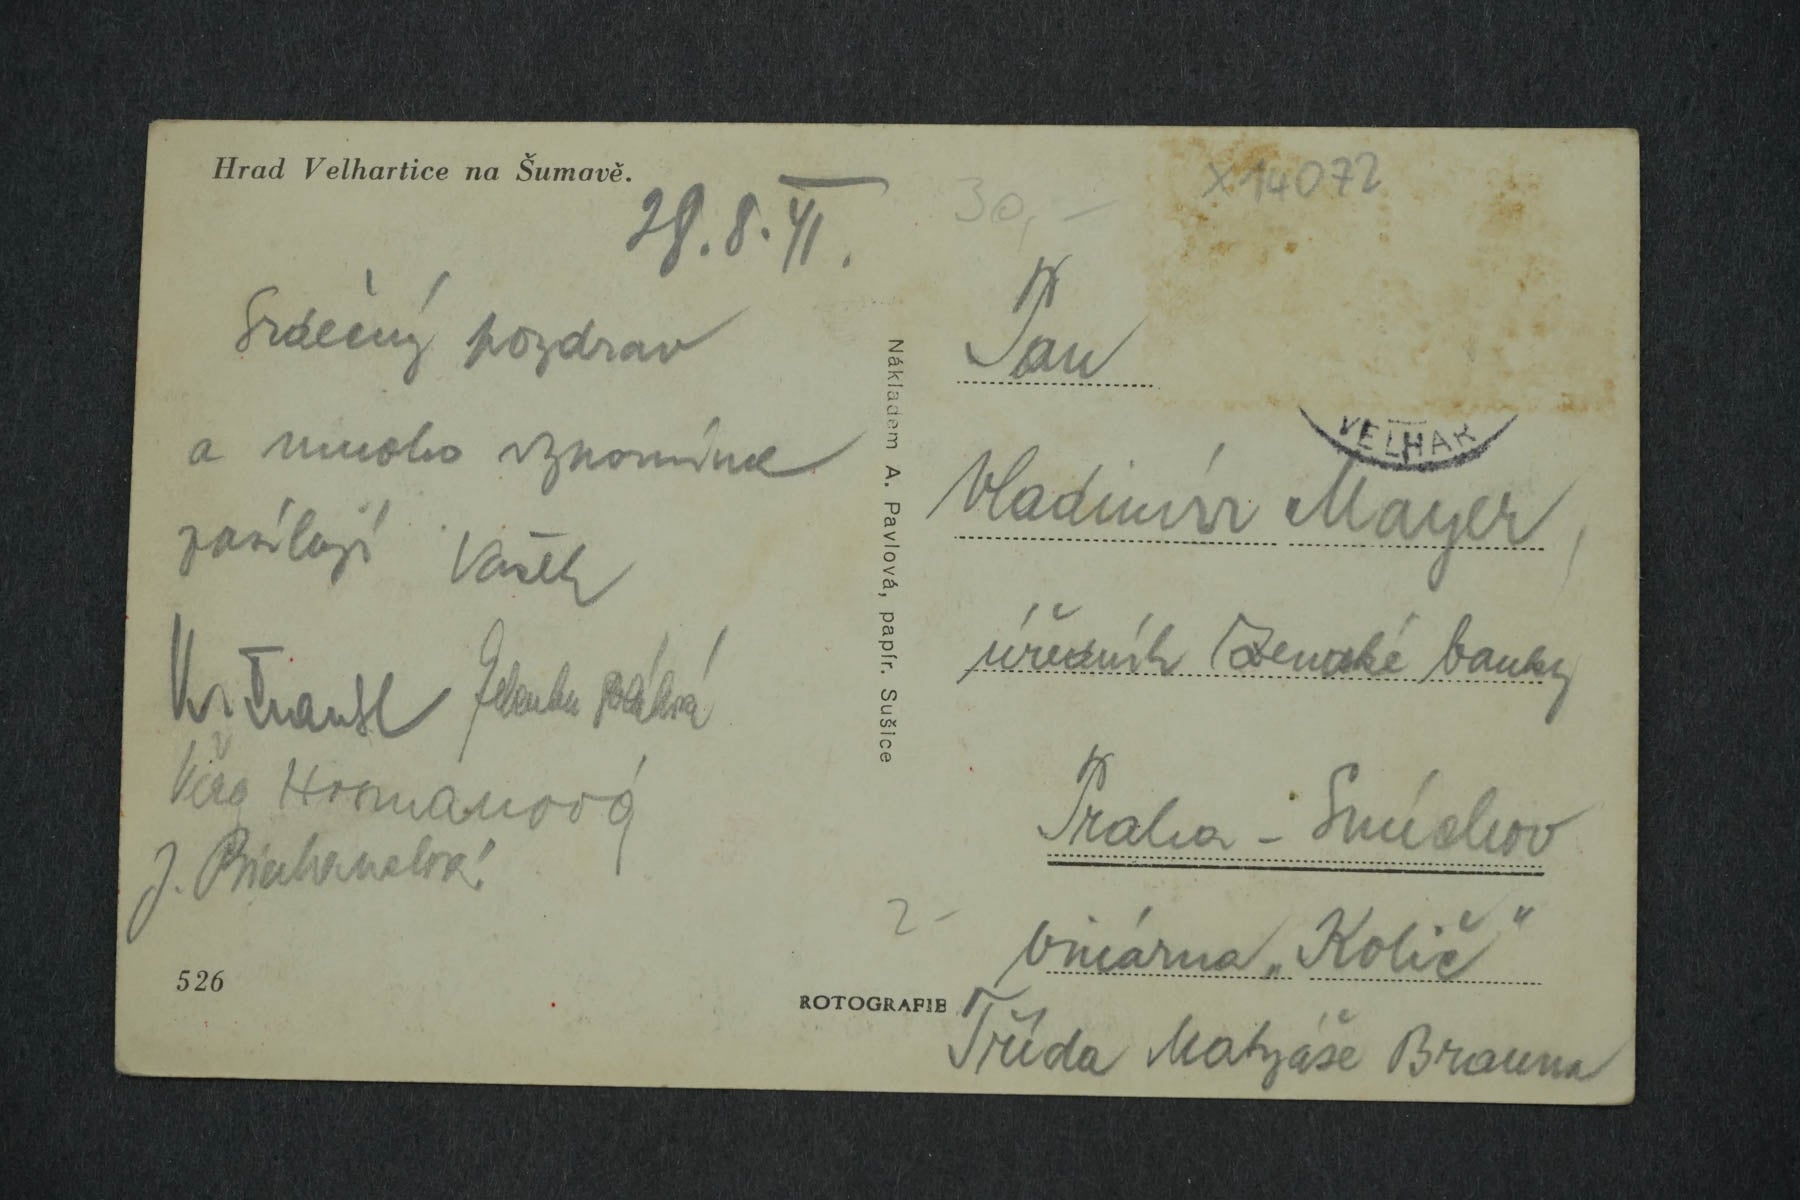 Hrad Velhartice na Šumavě.
28.8.41.
Srdečný pozdrav
a mnoho vzpomínek
zasílají Vašek
Věra Hromanová
J.
526
Nákladem A. Pavlová, papír. Sušice
ROTOGRAFIE
30,–
X14072
VELHAR
Pan
Vladimír Mayer,
úředník Zemské banky
Praha – Smíchov
vinárna „Količ“
Třída Matyáše Brauna
2–